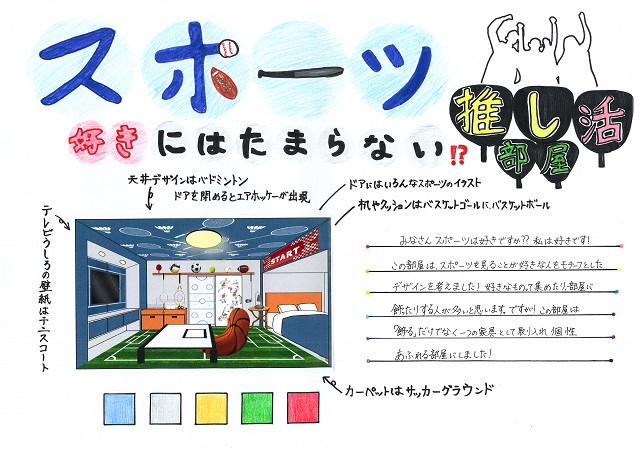 スポーツ
好きにはたまらない!?
推し活
部屋
天井デザインはバドミントン
ドアを閉めるとエアホッケーが出現
ドアにはいろんなスポーツのイラスト
机やクッションはバスケットゴールに、バスケットボール
テレビうしろの壁紙はテニスコート
START
みなさんスポーツは好きですか?? 私は好きです!
この部屋は、スポーツを見ることが好きな人をモチーフとした
デザインを考えました! 好きなものって集めたり、部屋に
飾ったりする人が多いと思います。ですが、この部屋は
「飾る」だけでなく一つの家具として取り入れ、個性
あふれる部屋にしました!
カーペットはサッカーグラウンド